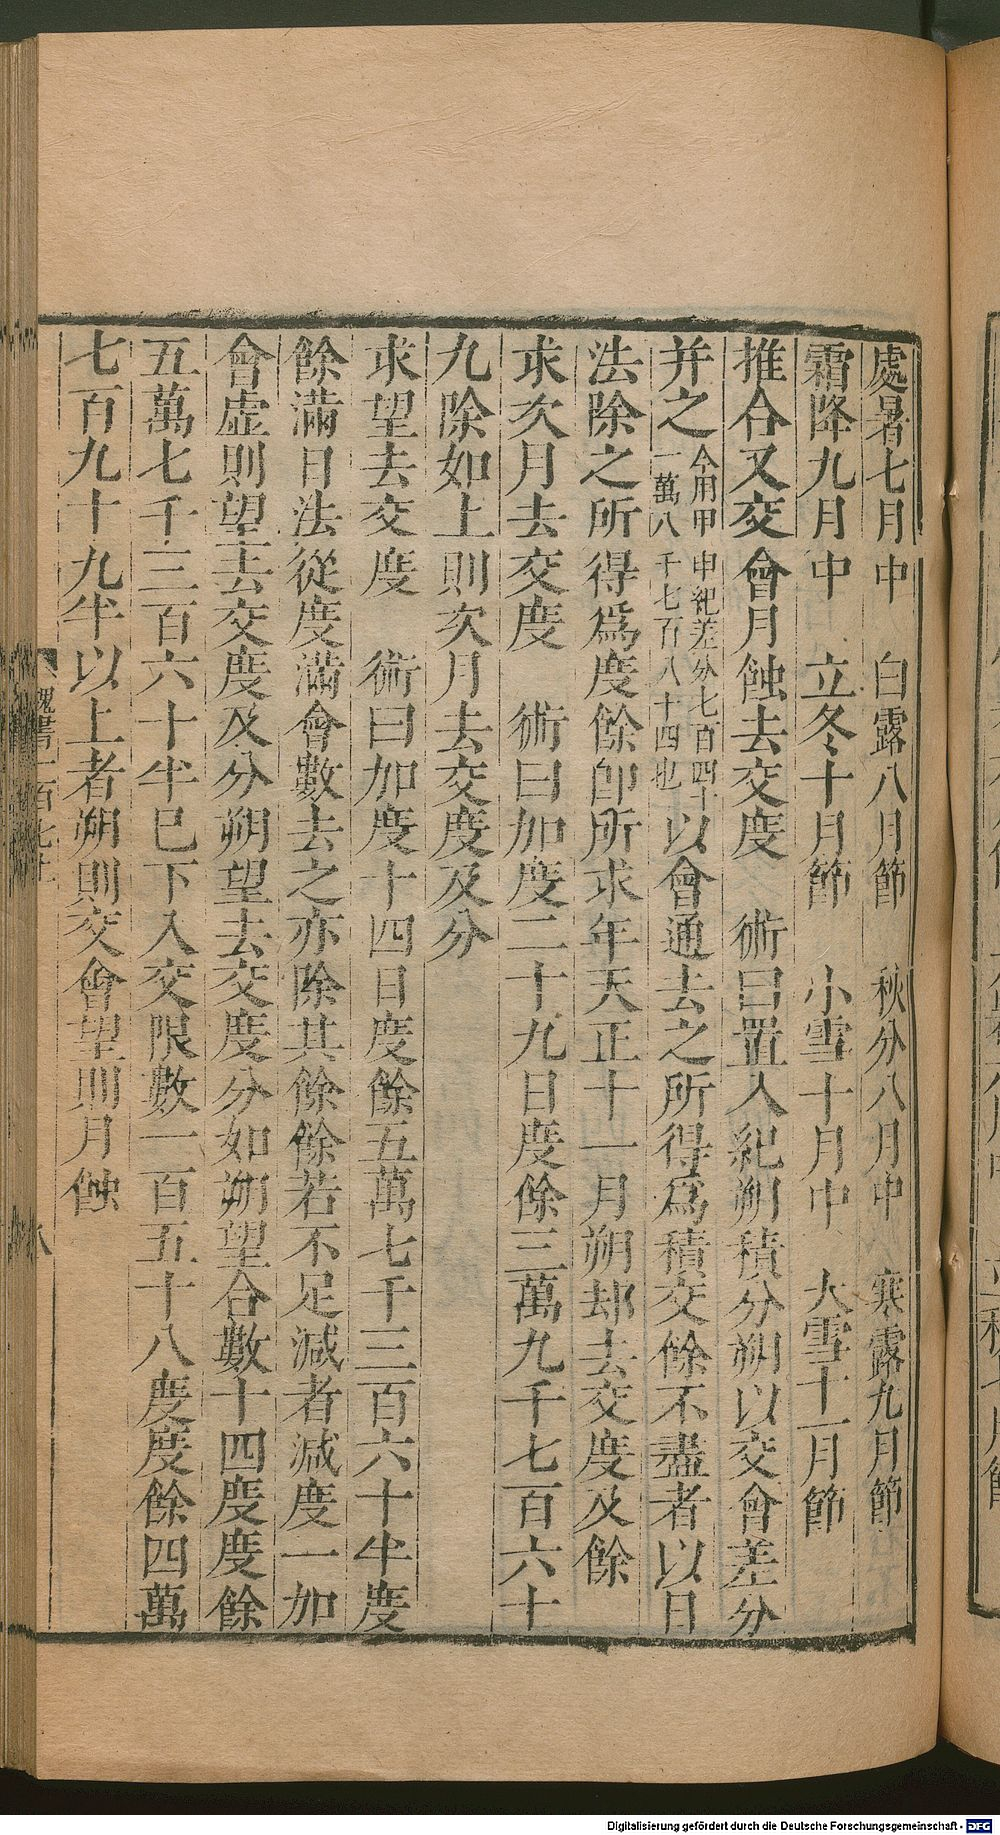 處暑七月中　白露八月節　秋分八月中　寒露九月節
霜降九月中　立冬十月節　小雪十月中　大雪十一月節
推合又交會月蝕去交度　術曰置入紀朔積分朔以交會差分
并之今用甲申紀差分七百四十一萬八千七百八十四也以會通去之所得爲積交餘不盡者以日
法除之所得爲度餘卽所求年天正十一月朔却去交度及餘
求次月去交度　術曰加度二十九日度餘三萬九千七百六十
九除如上則次月去交度及分
求望去交度　術曰加度十四日度餘五萬七千三百六十半度
餘滿日法從度滿會數去之亦除其餘餘若不足減者減度一加
會虛則望去交度及分朔望去交度分如朔望合數十四度度餘
五萬七千三百六十半已下入交限數一百五十八度度餘四萬
七百九十九半以上者朔則交會望則月蝕
魏書一百七上
八
Digitalisierung gefördert durch die Deutsche Forschungsgemeinschaft - DFG